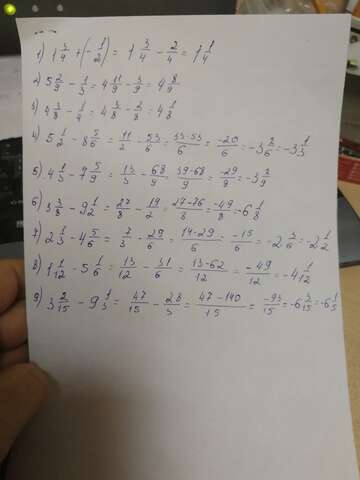 1) 1 3/4 + (- 1/2) = 1 3/4 - 2/4 = 1 1/4
2) 5 2/9 - 1/3 = 4 11/9 - 3/9 = 4 8/9
3) 4 3/8 - 1/4 = 4 3/8 - 2/8 = 4 1/8
4) 5 1/2 - 8 5/6 = 11/2 - 53/6 = 33-53/6 = -20/6 = -3 2/6 = -3 1/3
5) 4 1/3 - 7 5/9 = 13/3 - 68/9 = 39-68/9 = -29/9 = -3 2/9
6) 3 3/8 - 9 1/2 = 27/8 - 19/2 = 27-76/8 = -49/8 = -6 1/8
7) 2 1/3 - 4 5/6 = 7/3 - 29/6 = 14-29/6 = -15/6 = -2 3/6 = -2 1/2
8) 1 1/12 - 5 1/6 = 13/12 - 31/6 = 13-62/12 = -49/12 = -4 1/12
9) 3 2/15 - 9 1/3 = 47/15 - 28/3 = 47-140/15 = -93/15 = -6 3/15 = -6 1/5